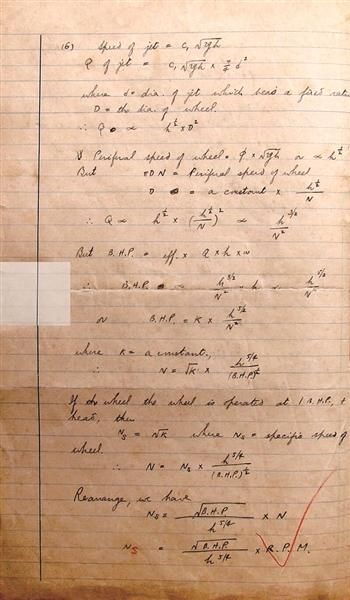 (6) Speed of jet = C, √2gh
Q of jet = C, √2gh × π/4 d²
where d = dia. of jet which bears a fixed ratio
D = the dia. of wheel.
∴ Q ∝ h^½ × D²
V Periferal speed of wheel = φ × √2gh or ∝ h^½
But πDN = Periferal speed of wheel
D = a constant × h^½/N
∴ Q ∝ h^½ × (h^½/N)² ∝ h^3/2/N²
But B.H.P. = eff. × Q × h × w
∴ B.H.P. ∝ h^3/2/N² · h ∝ h^5/2/N²
or B.H.P. = K × h^5/2/N²
where K = a constant.,
∴ N = √K × h^5/4/(B.H.P.)^½
If the wheel the wheel is operated at 1 B.H.P., +
head, then
Ns = √K where Ns = specific speed of
wheel.
∴ N = Ns × h^5/4/(B.H.P.)^½
Rearrange, we have
Ns = √B.H.P./h^5/4 × N
Ns = √B.H.P./h^5/4 × R.P.M.